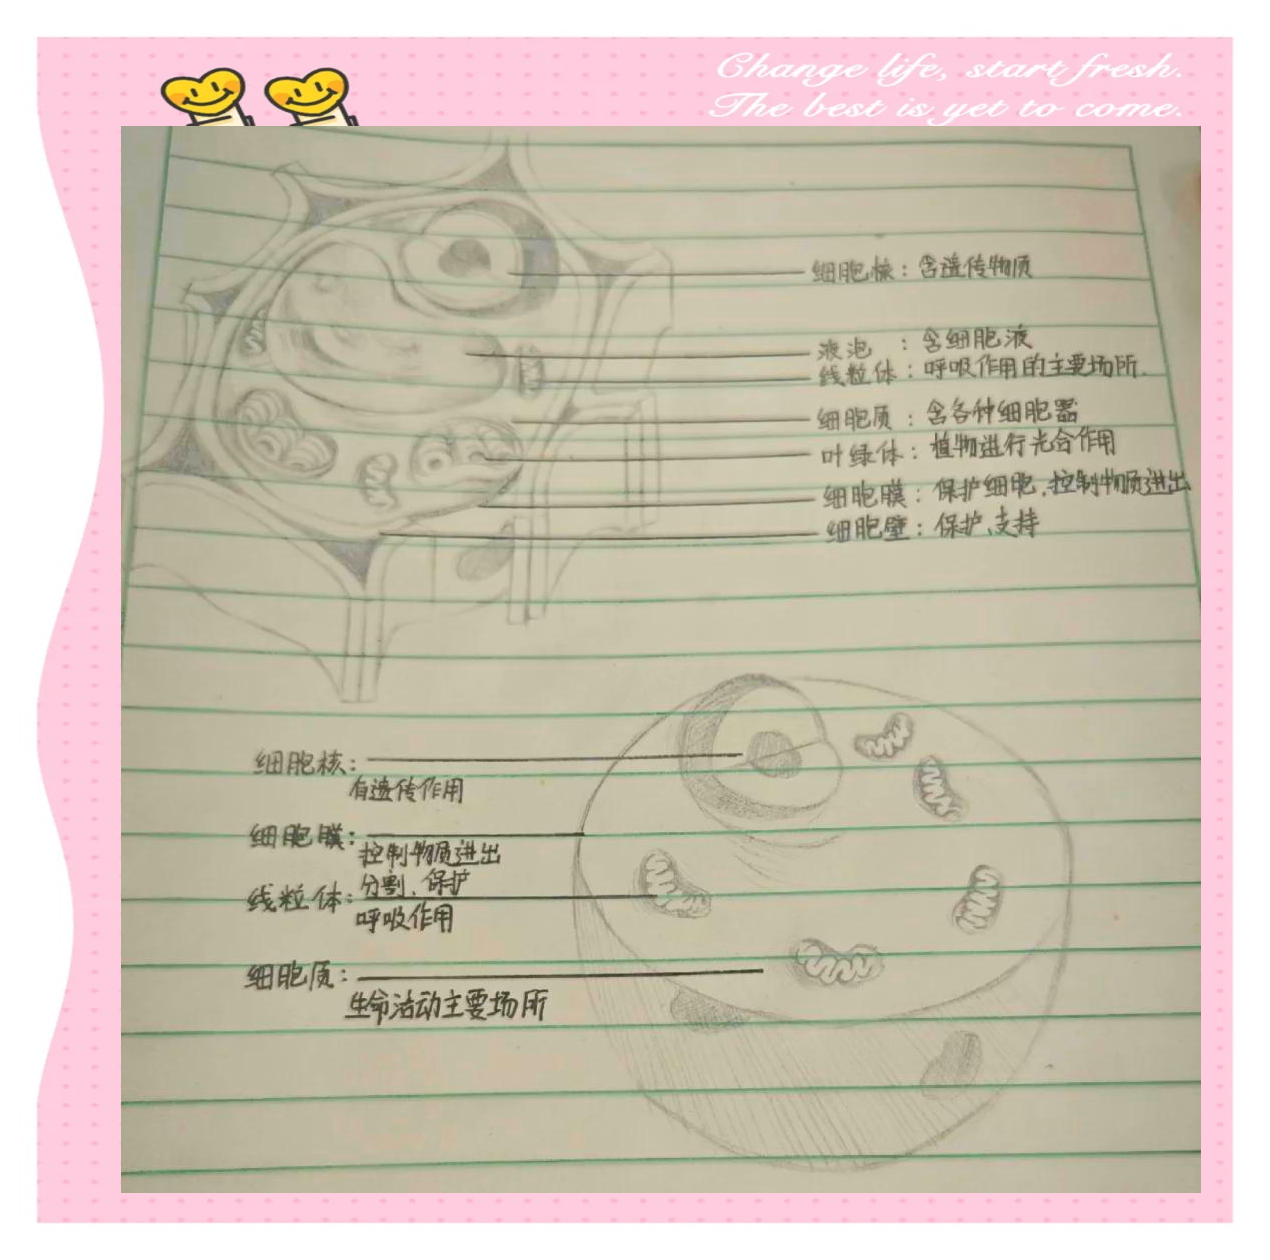 Change life, start fresh.
The best is yet to come.
细胞核：含遗传物质
液泡：含细胞液
线粒体：呼吸作用的主要场所.
细胞质：含各种细胞器
叶绿体：植物进行光合作用
细胞膜：保护细胞.控制物质进出
细胞壁：保护、支持
细胞核：
有遗传作用
细胞膜：
控制物质进出
分割、保护
线粒体：
呼吸作用
细胞质：
生命活动主要场所